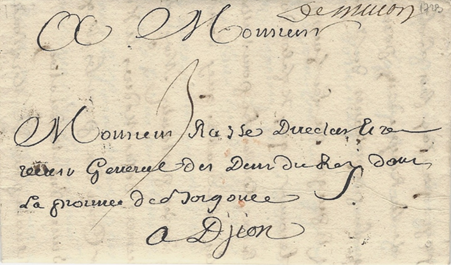 De macon 1723
A Monsieur
Monsieur Rasse Directeur et re
ceveur General des Dom du Roy dans
La province de Borgonee
a Dijon